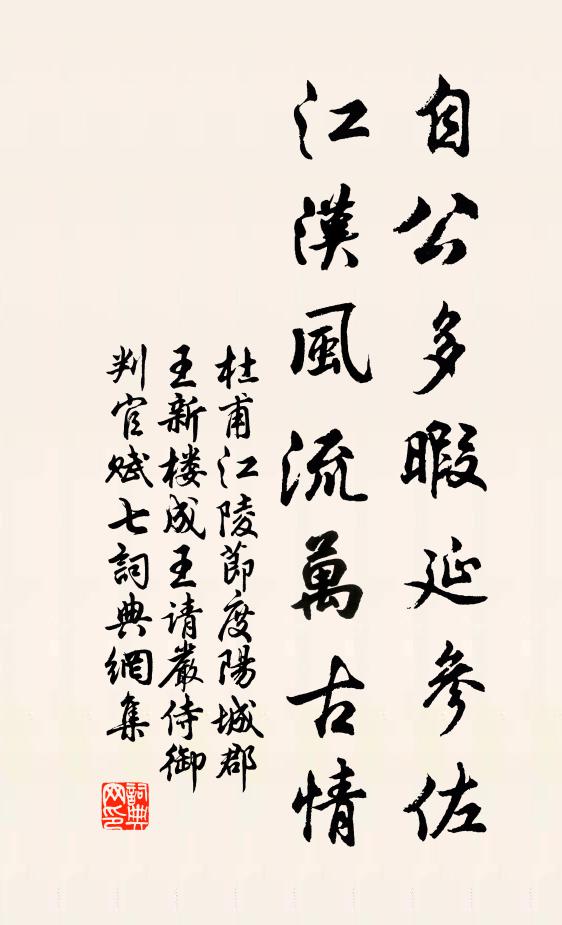 自公多暇延參佐
江漢風流萬古情
杜甫江陵節度陽城郡
王新楼成王请嚴侍御
判官赋七詞典網集
詞典网印